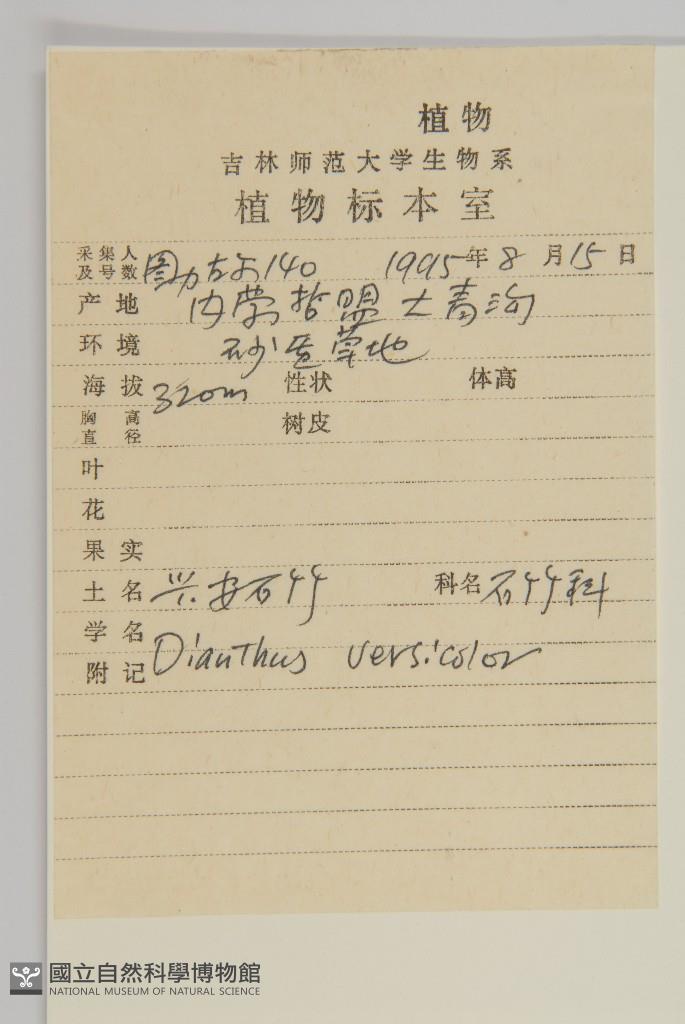 植物
吉林师范大学生物系
植物标本室
采集人及号数 图力古尔140 1995年8月15日
产地 内蒙哲盟大青沟
环境 砂质草地
海拔 320m 性状 体高
胸高直径 树皮
叶
花
果实
土名 兴安石竹 科名 石竹科
学名
附记 Dianthus versicolor
國立自然科學博物館
NATIONAL MUSEUM OF NATURAL SCIENCE